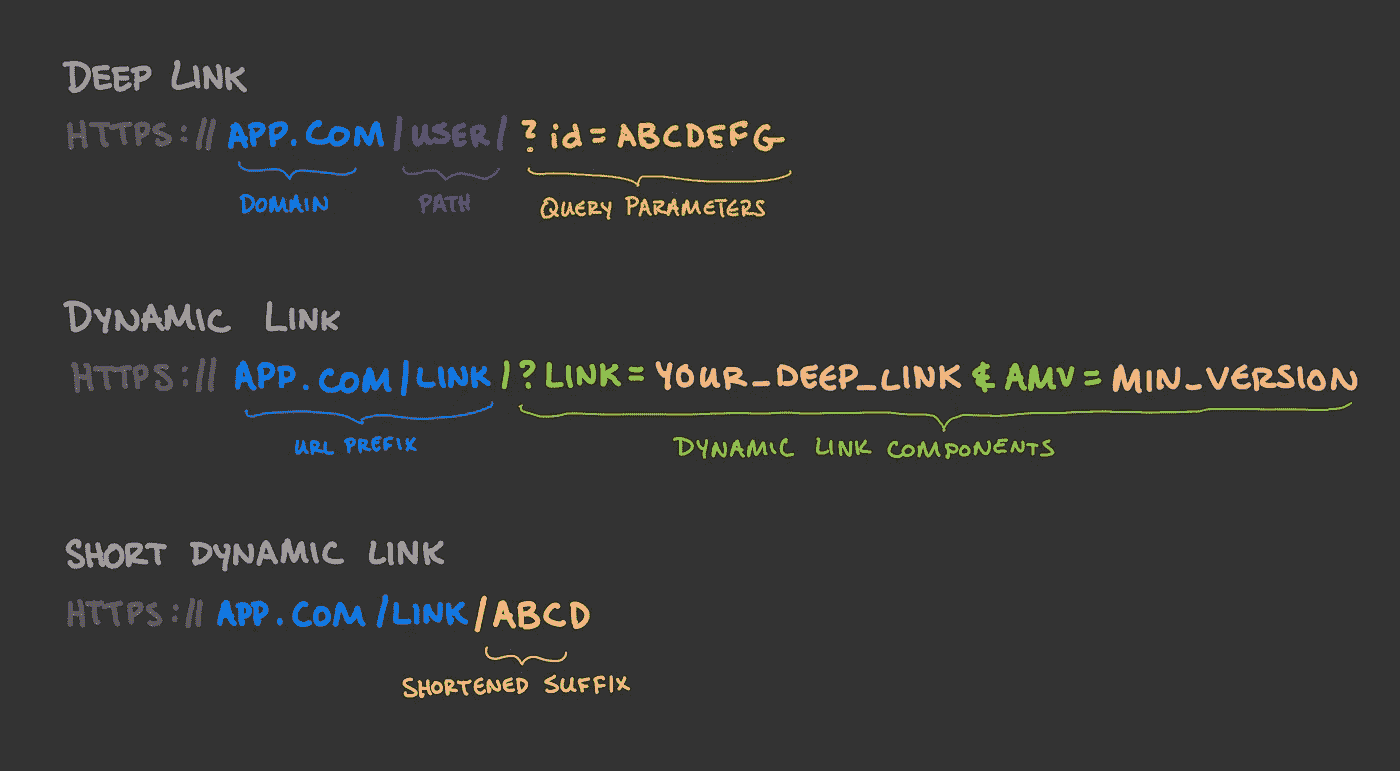 DEEP LINK
HTTPS://APP.COM/USER/?id=ABCDEFG
DOMAIN PATH QUERY PARAMETERS
DYNAMIC LINK
HTTPS://APP.COM/LINK/?LINK=YOUR_DEEP_LINK&AMV=MIN_VERSION
URL PREFIX DYNAMIC LINK COMPONENTS
SHORT DYNAMIC LINK
HTTPS://APP.COM/LINK/ABCD
SHORTENED SUFFIX